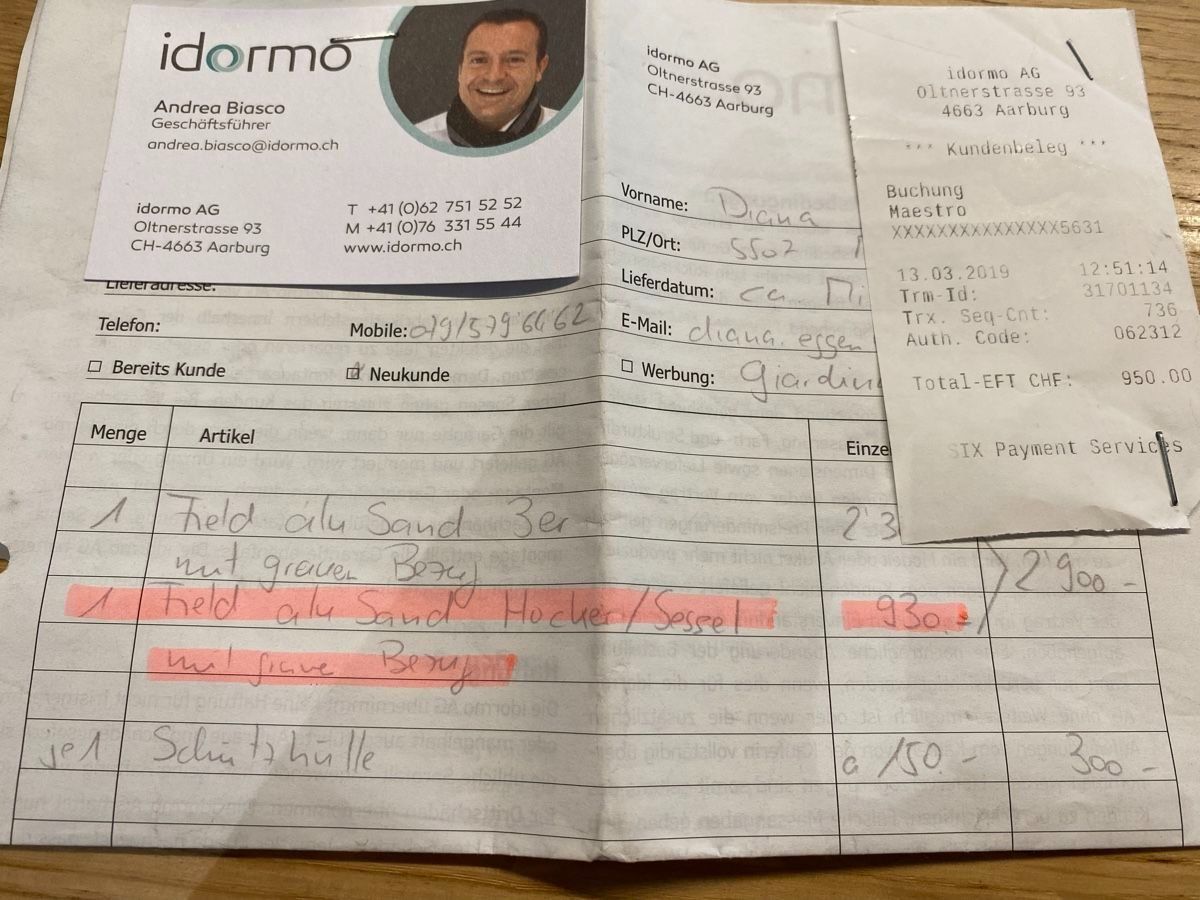 idormo
Andrea Biasco
Geschäftsführer
andrea.biasco@idormo.ch
idormo AG
Oltnerstrasse 93
CH-4663 Aarburg
T +41 (0)62 751 52 52
M +41 (0)76 331 55 44
www.idormo.ch
idormo AG
Oltnerstrasse 93
CH-4663 Aarburg
idormo AG
Oltnerstrasse 93
4663 Aarburg
*** Kundenbeleg ***
Buchung
Maestro
XXXXXXXXXXXXXXX5631
13.03.2019 12:51:14
Trm-Id: 31701134
Trx. Seq-Cnt: 736
Auth. Code: 062312
Total-EFT CHF: 950.00
SIX Payment Services
Vorname: Diana
PLZ/Ort: 5502
Lieferadresse:
Lieferdatum: ca. Mi
Telefon: Mobile: 079/579 64 62
E-Mail: diana.eggen
Bereits Kunde Neukunde Werbung: Giardin
Menge Artikel Einze
1 Field alu Sand 3er 2'3
mit grauen Bezug 2'900.-
1 Field alu Sand Hocker/Sessel 930.-
mit graue Bezug
je 1 Schutzhülle à 150.- 300.-